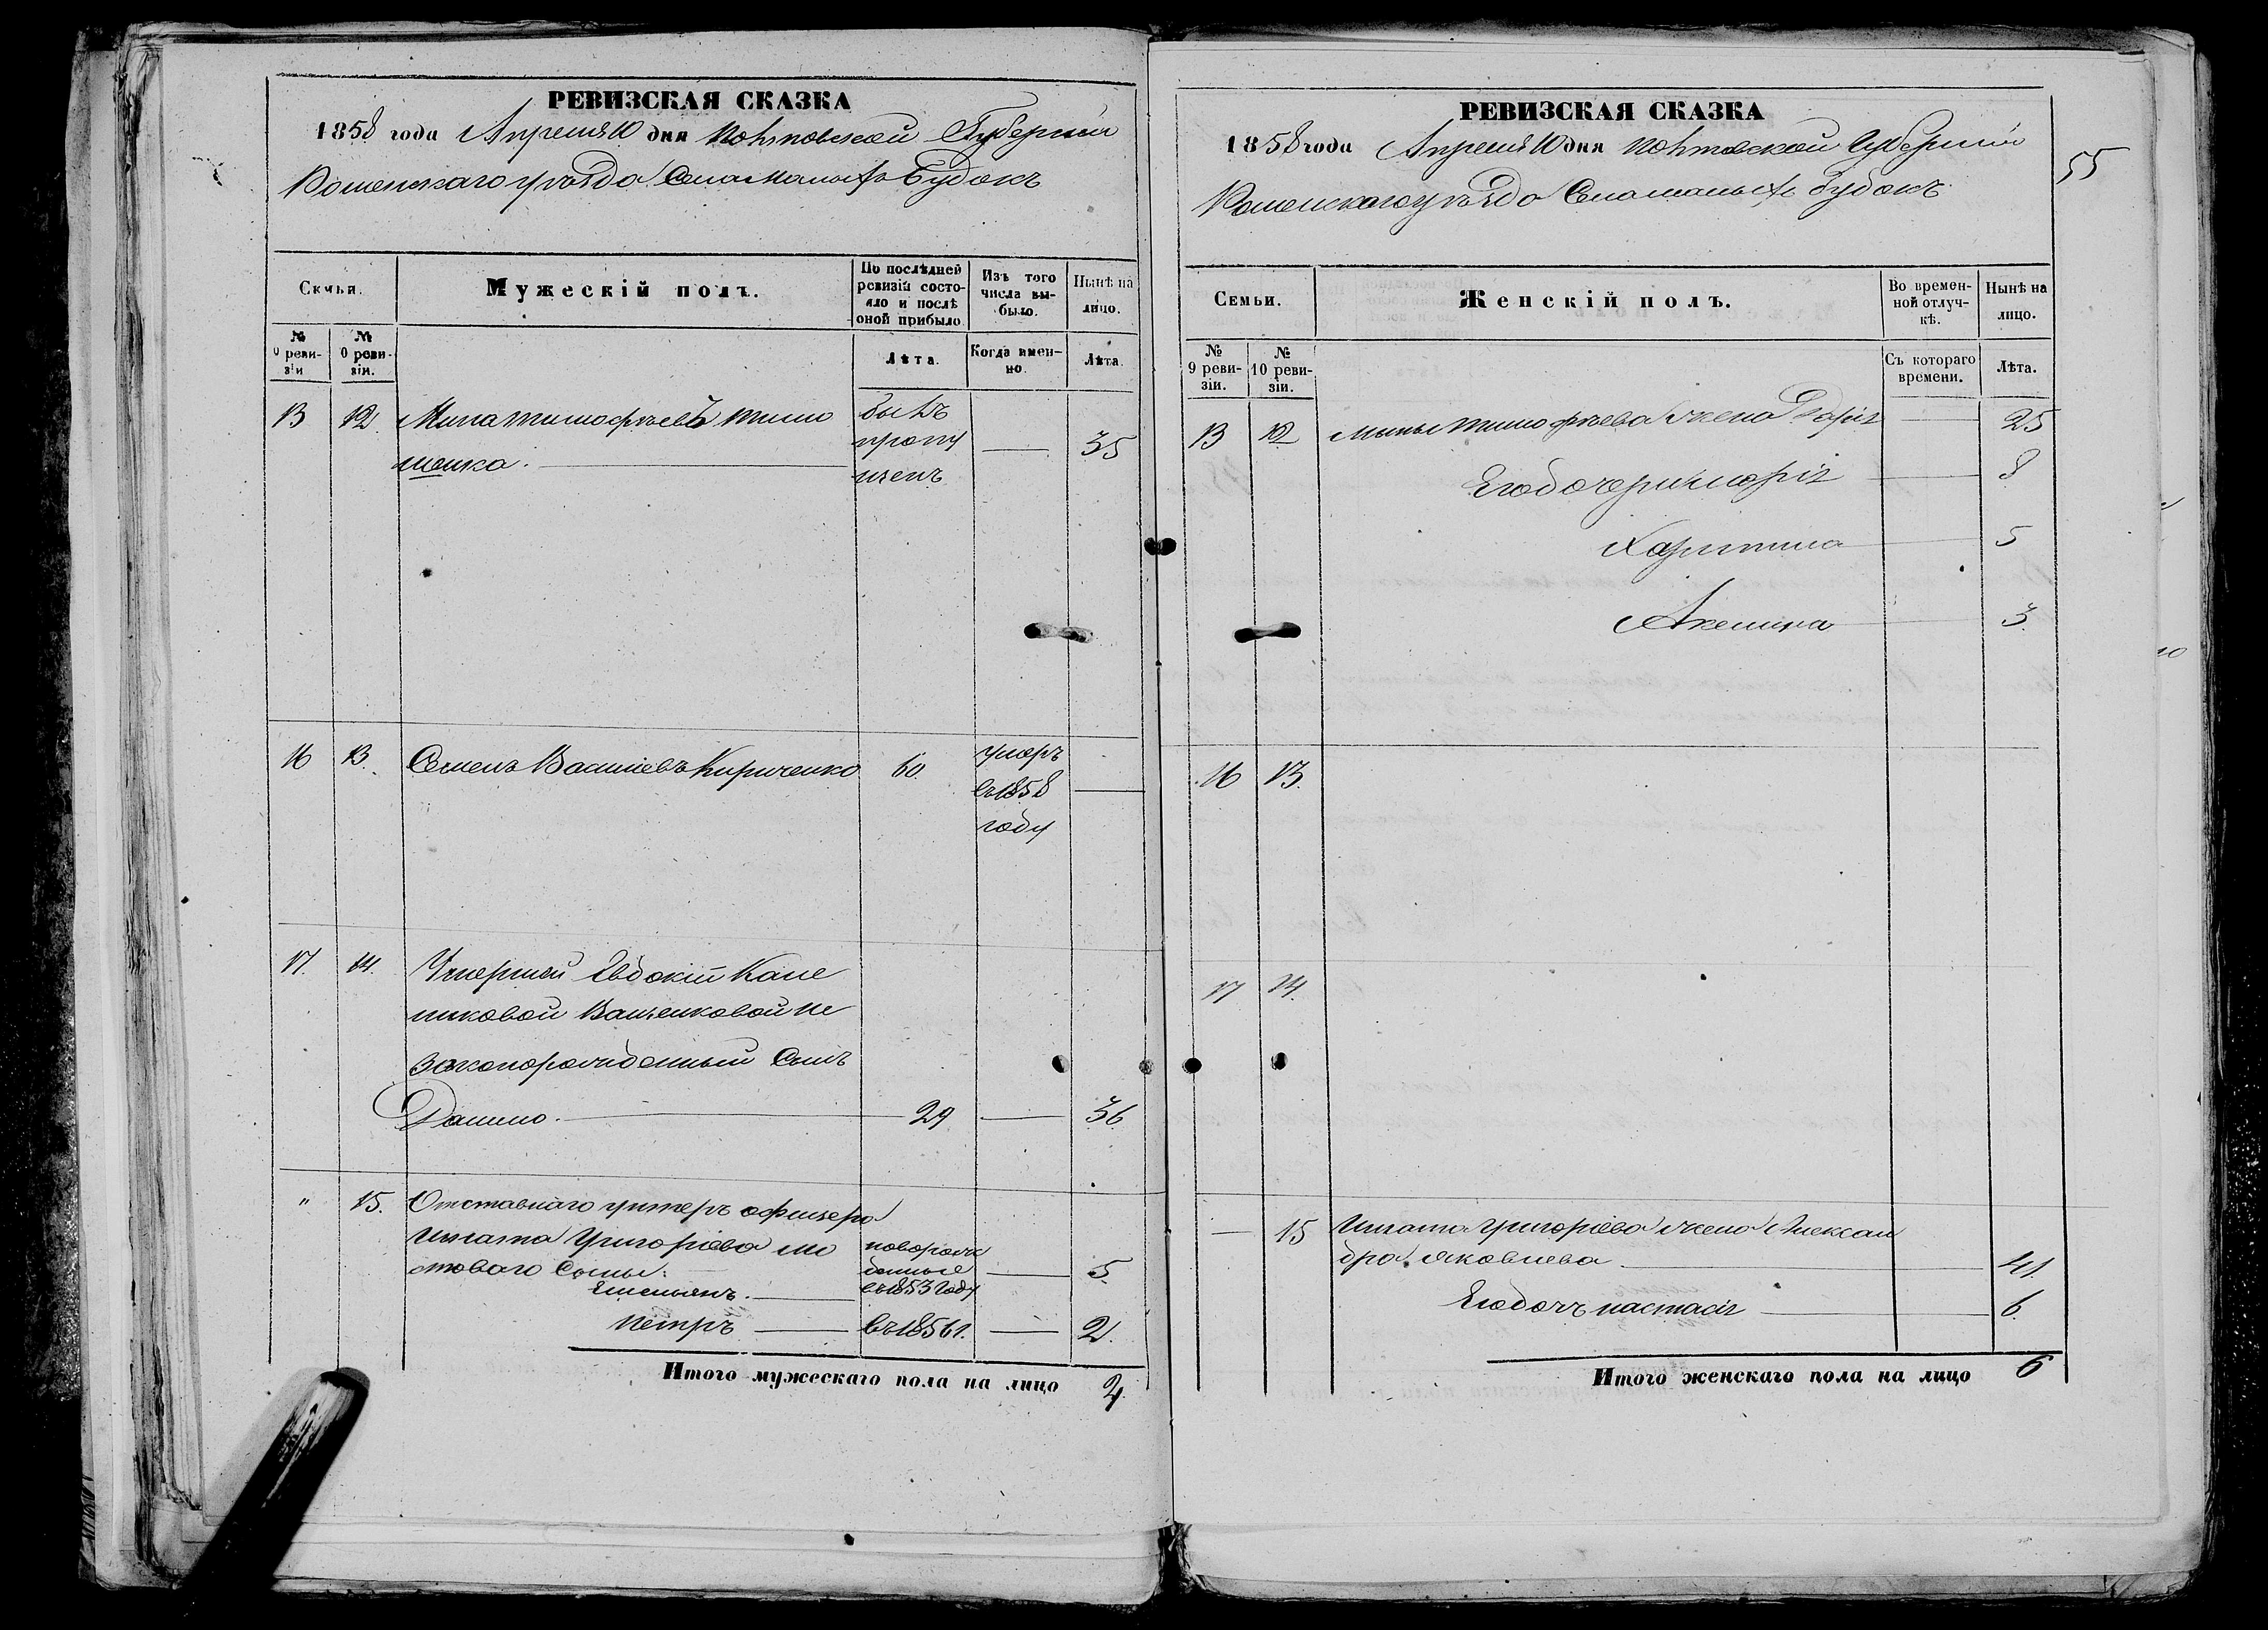 РЕВИЗСКАЯ СКАЗКА
1858 года Апреля 10 дня Полтавской Губернии
Роменскаго уезда Села Малыхъ Будокъ
Семьи.
Мужескій полъ.
По послѣдней ревизіи состояло и послѣ оной прибыло.
Изъ того числа выбыло.
Нынѣ на лицо.
№ 9 ревизіи
№ 10 ревизіи.
Лѣта.
Когда именно.
Лѣта.
13 12 Мина Тимофѣевъ Тимо былъ
шенко пропу — 35
щенъ
16 13. Семенъ Васильевъ Кириченко 60. умеръ
въ 1858 —
году
17. 14. Умершей Евдокіи
Ващенковой не
законорожденный Сынъ
Данило. — 29 — 36
" 15. Отставнаго унтеръ офицера
Игната Григорьева новорож
Сыны: денные — 5.
Емельянъ. — въ 1853 году
Петръ — въ 1856 г. — 2.
Итого мужескаго пола на лицо 4
РЕВИЗСКАЯ СКАЗКА
55
1858 года Апреля 10 дня Полтавской Губернии
Роменскаго уезда Села Малыхъ Будокъ
Семьи.
Женскій полъ.
Во временной отлучкѣ.
Нынѣ на лицо.
№ 9 ревизіи.
№ 10 ревизіи.
Съ котораго времени.
Лѣта.
13 12 Мины Тимофѣева жена Дарія — 25
Его дочери Марія — 8
Харитина — 5
Акелина — 3.
16 13.
17 14.
— 15 Игната Григорьева жена Алексан
дра Яковлева — 41.
Его дочь Настасія — 6.
Итого женскаго пола на лицо 6